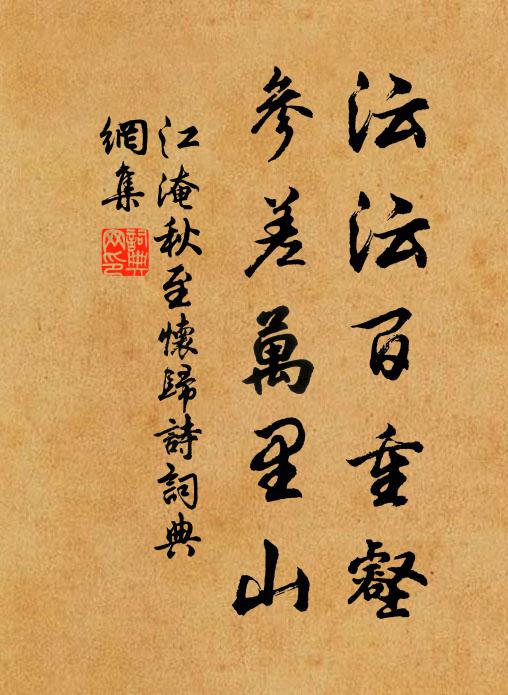 沄沄百重壑
參差萬里山
江淹秋至懷歸詩詞典
網集
詞典
网印